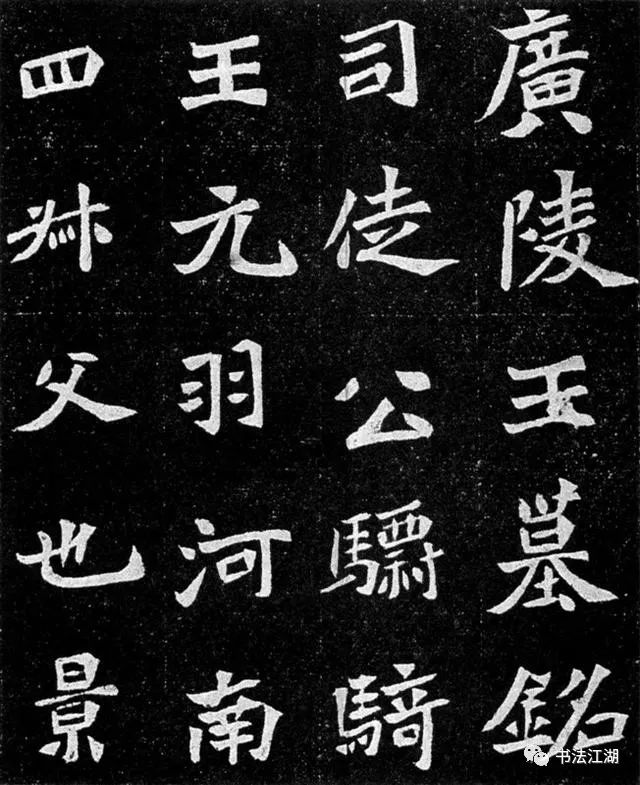 廣陵王墓銘
司徒公驃騎
王元羽河南
四叔父也景
书法江湖